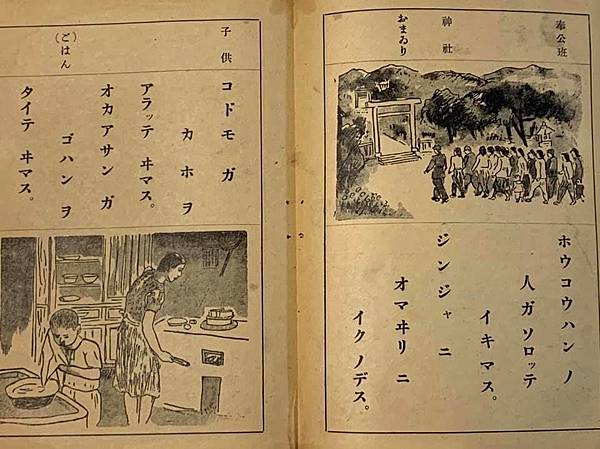 奉公班
神社
おまゐり
ホウコウハンノ
人ガソロッテ
イキマス。
ジンジャニ
オマヰリニ
イクノデス。
子供
(ごはん)
コドモガ
カホヲ
アラッテ ヰマス。
オカアサンガ
ゴハンヲ
タイテ ヰマス。